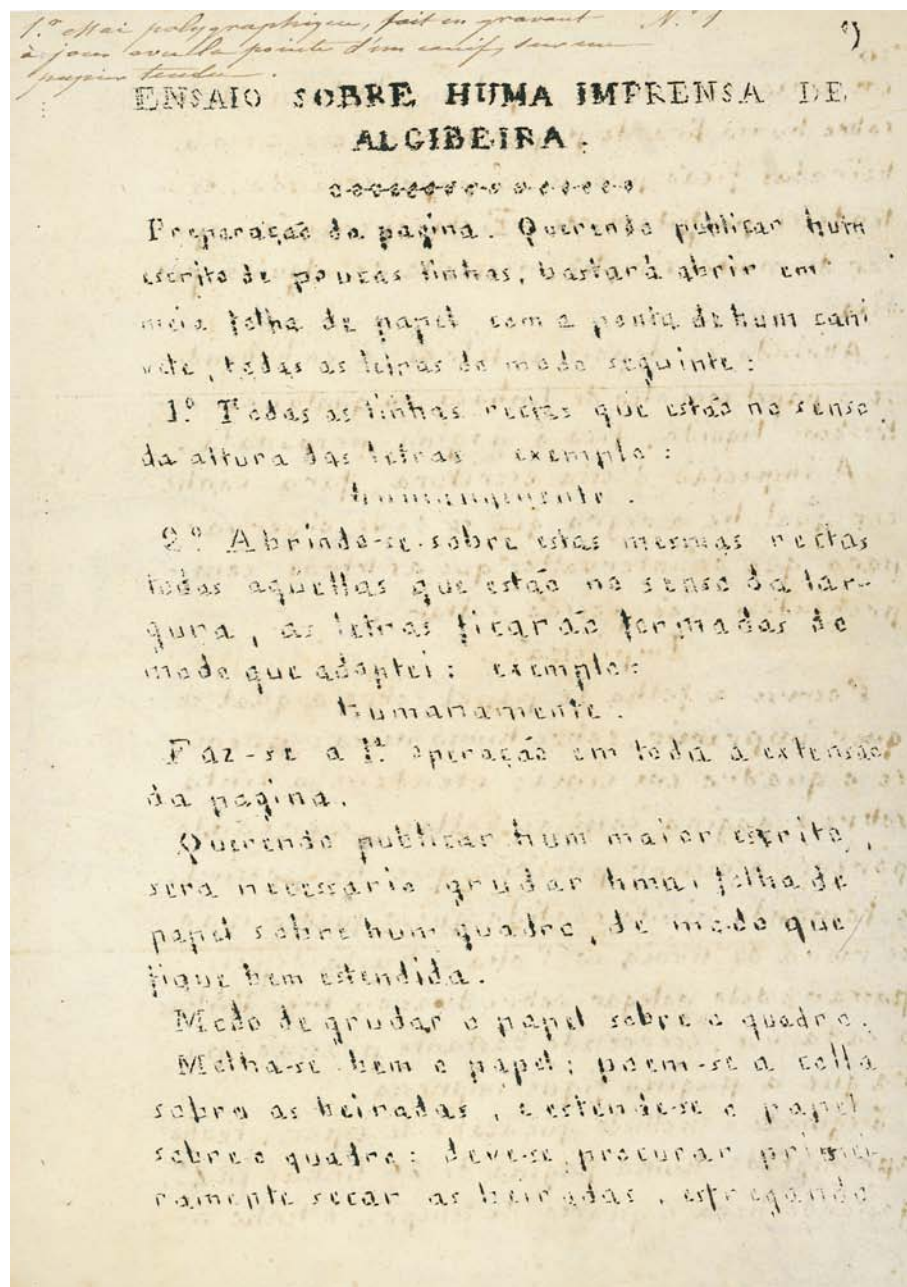 1.er essai polygraphique, fait en gravant N.º 1
à jour avec la pointe d'un canif, sur un
papier tendu.
ENSAIO SOBRE HUMA IMPRENSA DE
ALGIBEIRA.
Preparação da pagina. Querendo publicar hum
escrito de poucas linhas, bastará abrir em
meia folha de papel com a ponta de hum cani
vete, todas as letras do modo seguinte:
1.º Todas as linhas rectas que estão no senso
da altura das letras exemplo:
humanamente.
2.º Abrindo-se sobre estas mesmas rectas
todas aquellas que estão no senso da lar-
gura, as letras ficarão formadas do
modo que adoptei: exemplo:
humanamente.
Faz-se a 1.ª operação em toda a extensão
da pagina.
Querendo publicar hum maior escrito,
sera necessario grudar huma folha de
papel sobre hum quadro, de modo que
fique bem estendida.
Modo de grudar o papel sobre o quadro.
Molha-se bem o papel; poem-se a colla
sobre as beiradas, e estende-se o papel
sobre o quadro: deve-se procurar primei-
ramente secar as beiradas, esfregando